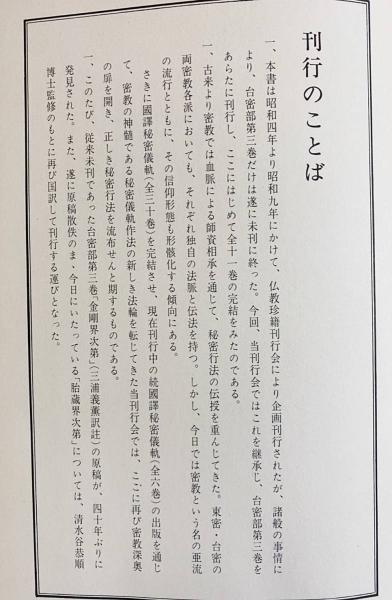 刊行のことば
一、本書は昭和四年より昭和九年にかけて、仏教珍籍刊行会により企画刊行されたが、諸般の事情に
より、台密部第三巻だけは遂に未刊に終った。今回、当刊行会ではこれを継承し、台密部第三巻を
あらたに刊行し、ここにはじめて全十一巻の完結をみたのである。
一、古来より密教では血脈による師資相承を通じて、秘密行法の伝授を重んじてきた。東密・台密の
両密教各派においても、それぞれ独自の法脈と伝法を持つ。しかし、今日では密教という名の亜流
の流行とともに、その信仰形態も形骸化する傾向にある。
さきに國譯秘密儀軌(全三十巻)を完結させ、現在刊行中の続國譯秘密儀軌(全六巻)の出版を通じ
て、密教の神髄である秘密儀軌作法の新しき法輪を転じてきた当刊行会では、ここに再び密教深奥
の扉を開き、正しき秘密行法を流布せんと期するものである。
一、このたび、従来未刊であった台密部第三巻「金剛界次第」(三浦義薫訳註)の原稿が、四十年ぶりに
発見された。また、遂に原稿散佚のまゝ今日にいたっている「胎蔵界次第」については、清水谷恭順
博士監修のもとに再び国訳して刊行する運びとなった。